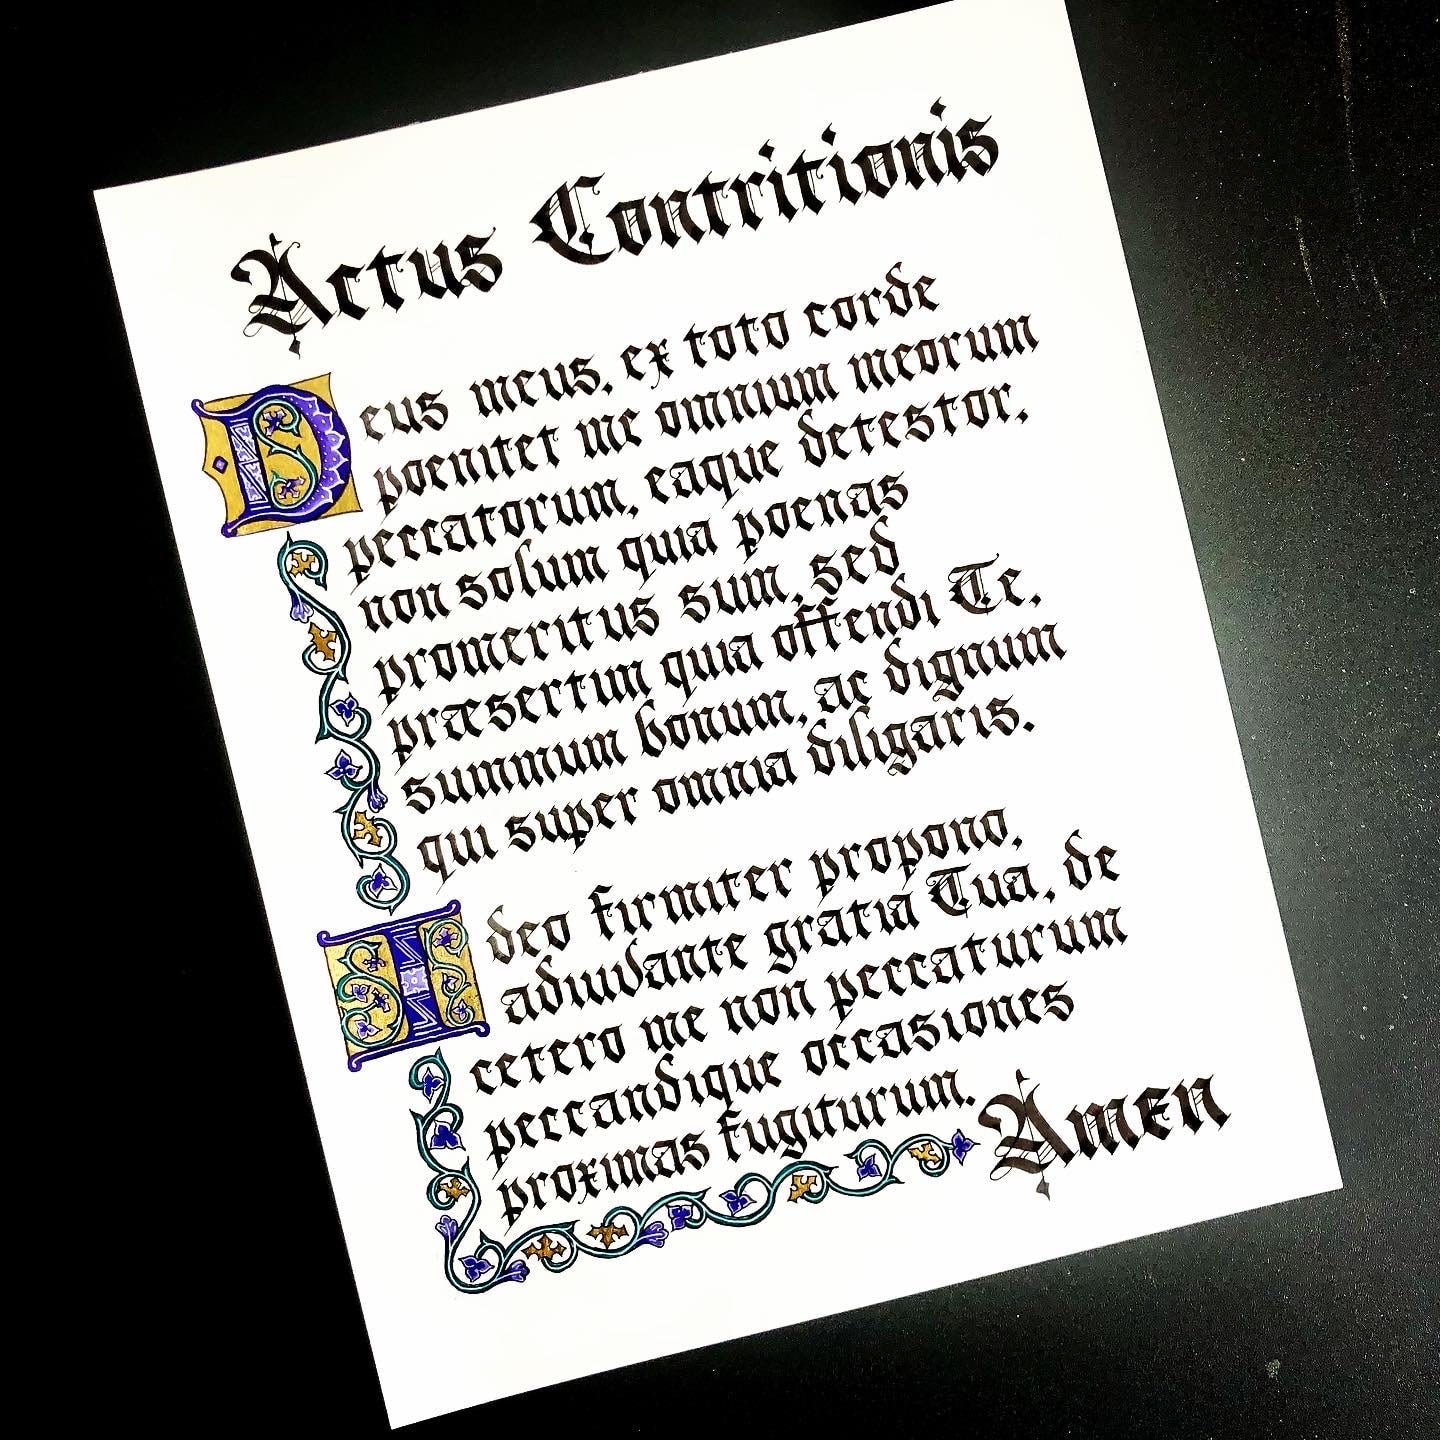 Actus Contritionis
Deus meus, ex toto corde
poenitet me omnium meorum
peccatorum, eaque detestor,
non solum quia poenas
promeritus sum, sed
præsertim quia offendi Te,
summum bonum, ac dignum
qui super omnia diligaris.
Ideo firmiter propono,
adiuvante gratia Tua, de
cetero me non peccaturum
peccandique occasiones
proximas fugiturum.
Amen